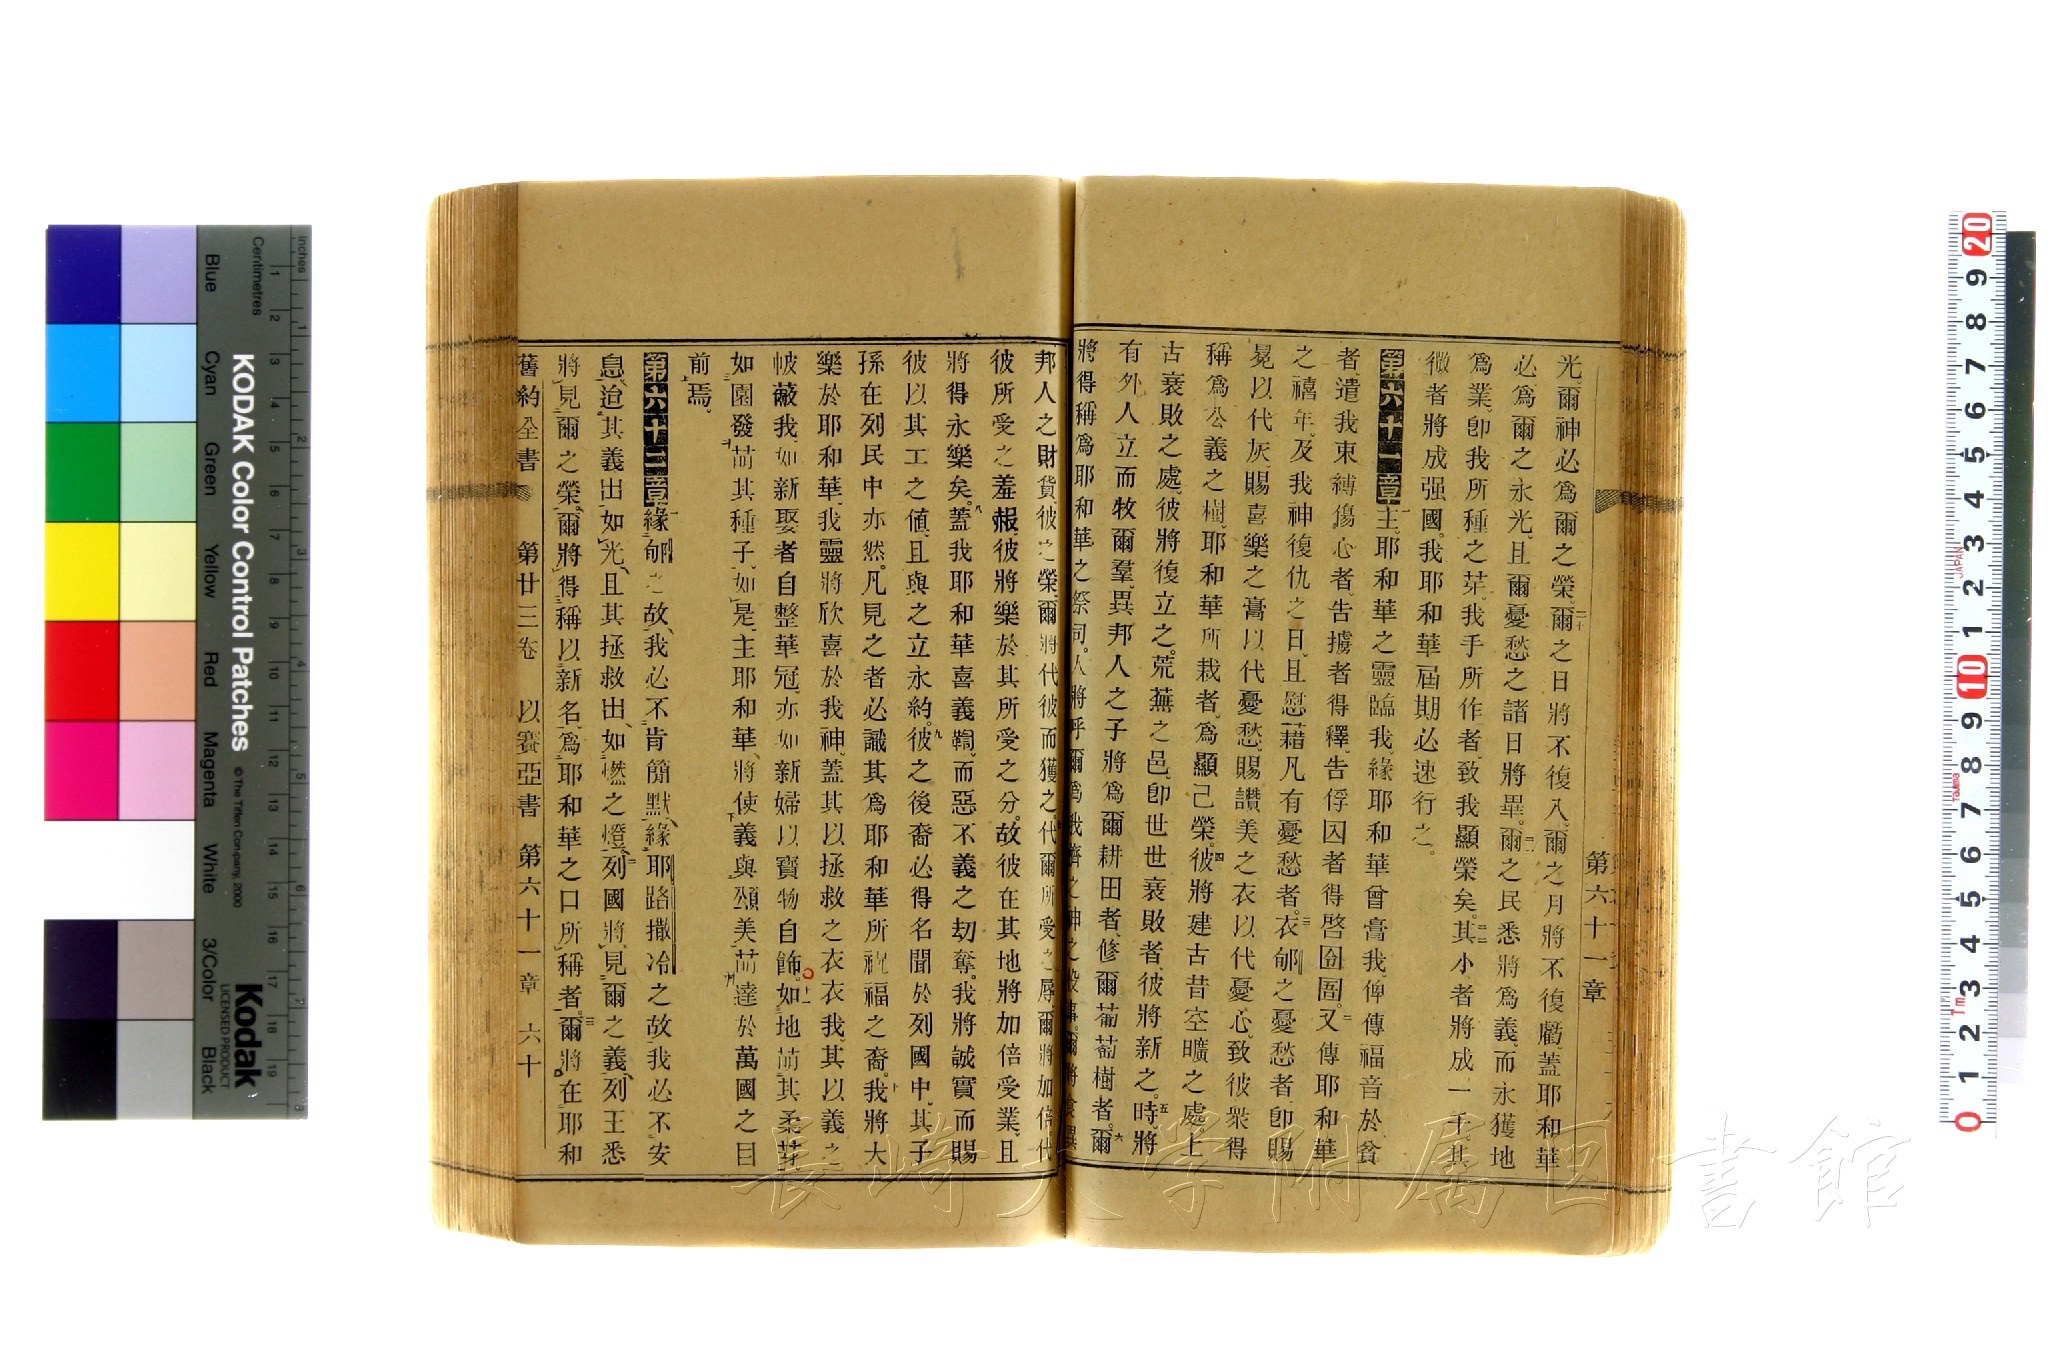 第六十一章
光、爾神必爲爾之榮、二十爾之日將不復入、爾之月將不復虧、蓋耶和華
必爲爾之永光、且爾憂愁之諸日將畢。二一爾之民悉將爲義、而永獲地
爲業、卽我所種之芽、我手所作者、致我顯榮矣。二二其小者將成一千、其
微者將成强國。我耶和華屆期必速行之。
第六十一章一主耶和華之靈臨我、緣耶和華曾膏我、俾傳福音於貧
者、遣我束縛傷心者、告擄者得釋、告俘囚者得啓囹圄。二又傳耶和華
之禧年、及我神復仇之日、且慰藉凡有憂愁者。三衣郇之憂愁者、卽賜
冕以代灰、賜喜樂之膏以代憂愁、賜讚美之衣以代憂心、致彼衆得
稱爲公義之樹、耶和華所栽者、爲顯己榮。四彼將建古昔空曠之處、上
古衰敗之處、彼將復立之。荒蕪之邑、卽世世衰敗者、彼將新之。五時、將
有外人立而牧爾羣、異邦人之子將爲爾耕田者、修爾葡萄樹者。六爾
將得稱爲耶和華之祭司。人將呼爾爲我儕之神之役事。爾將食異
邦人之財貨、彼之榮、爾將代彼而獲之。七代爾所受之辱、爾將加倍、代
彼所受之羞赧、彼將樂於其所受之分。故彼在其地將加倍受業、且
將得永樂矣。八蓋我耶和華喜義鞫、而惡不義之刧奪。我將誠實而賜
彼以其工之値、且與之立永約。九彼之後裔必得名聞於列國中、其子
孫在列民中亦然。凡見之者必識其爲耶和華所祝福之裔。十我將大
樂於耶和華、我靈將欣喜於我神、蓋其以拯救之衣衣我、其以義之
帔蔽我、如新娶者自整華冠、亦如新婦以寶物自飾。十一如地萌其柔芽、
如園發萌其種子、如是主耶和華、將使義與頌美萌達於萬國之目
前焉。
第六十二章一緣郇之故、我必不肯簡默、緣耶路撒冷之故、我必不安
息、迨其義出如光、且其拯救出、如燃之燈、二列國將見爾之義、列王悉
將見爾之榮。爾將得稱以新名、爲耶和華之口所稱者。三爾將在耶和
舊約全書 第廿三卷 以賽亞書 第六十一章 六十
KODAK Color Control Patches
© The Tiffen Company, 2000
Kodak
LICENSED PRODUCT
Inches
Centimetres
Blue
Cyan
Green
Yellow
Red
Magenta
White
3/Color
Black
長崎大学附属図書館